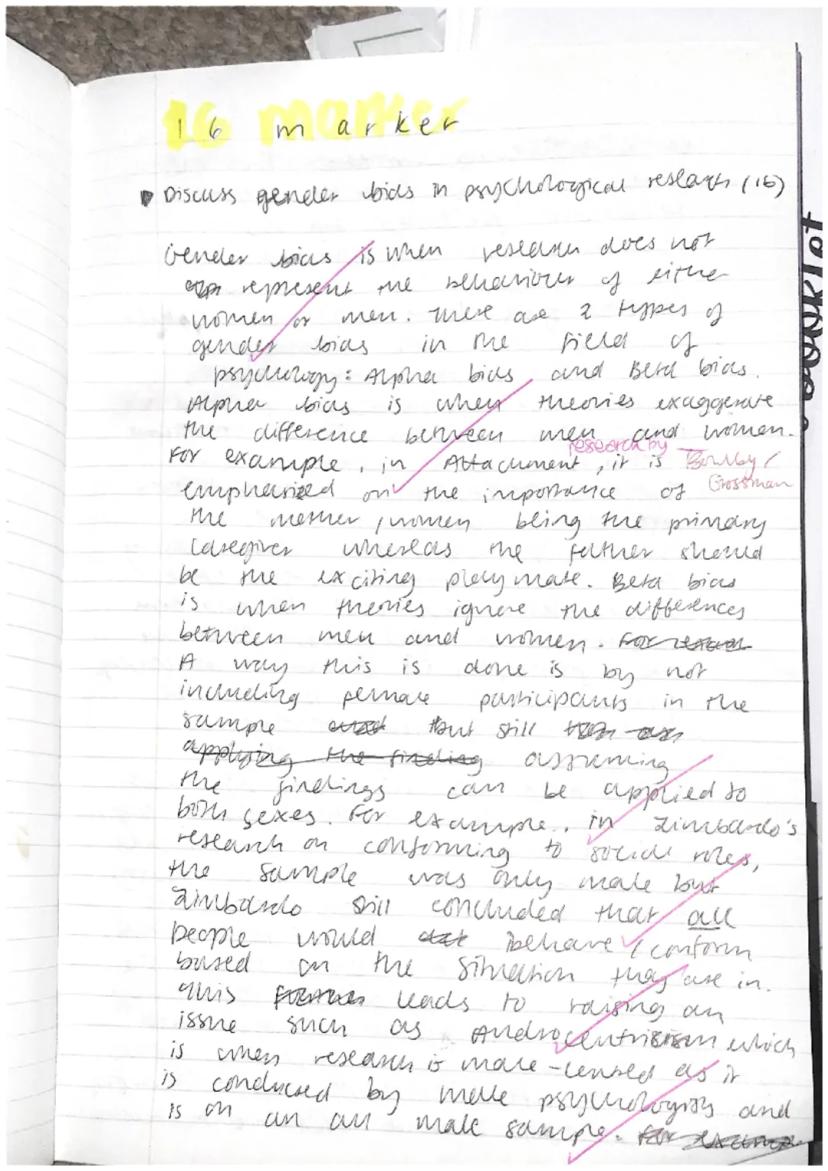 16 marker
Discuss gender bias in psychological research (16)
Gender bias is when research does not
represent the behaviour of either
women or men. There are 2 types of
gender bias in the field of
psychology: Alpha bias and Beta bias.
Alpha bias is when theories exaggerate
the difference between men and women.
research by Bowlby/
For example, in Attachment, it is
Grossman
emphasized on the importance of
the mother/women being the primary
caregiver whereas the father should
be the exciting playmate. Beta bias
is when theories ignore the differences
between men and women.
A way this is done is by not
including female participants in the
sample but still
applying the finding assuming
the findings can be applied to
both sexes. For example, in Zimbardo's
research on conforming to social roles,
the sample was only male but
Zimbardo still concluded that all
people would behave/conform
based on the situation they are in.
This leads to raising an
issue such as Androcentrism which
is when research is male-centred as it
is conducted by male psychologists and
is on an all male sample.
booklet